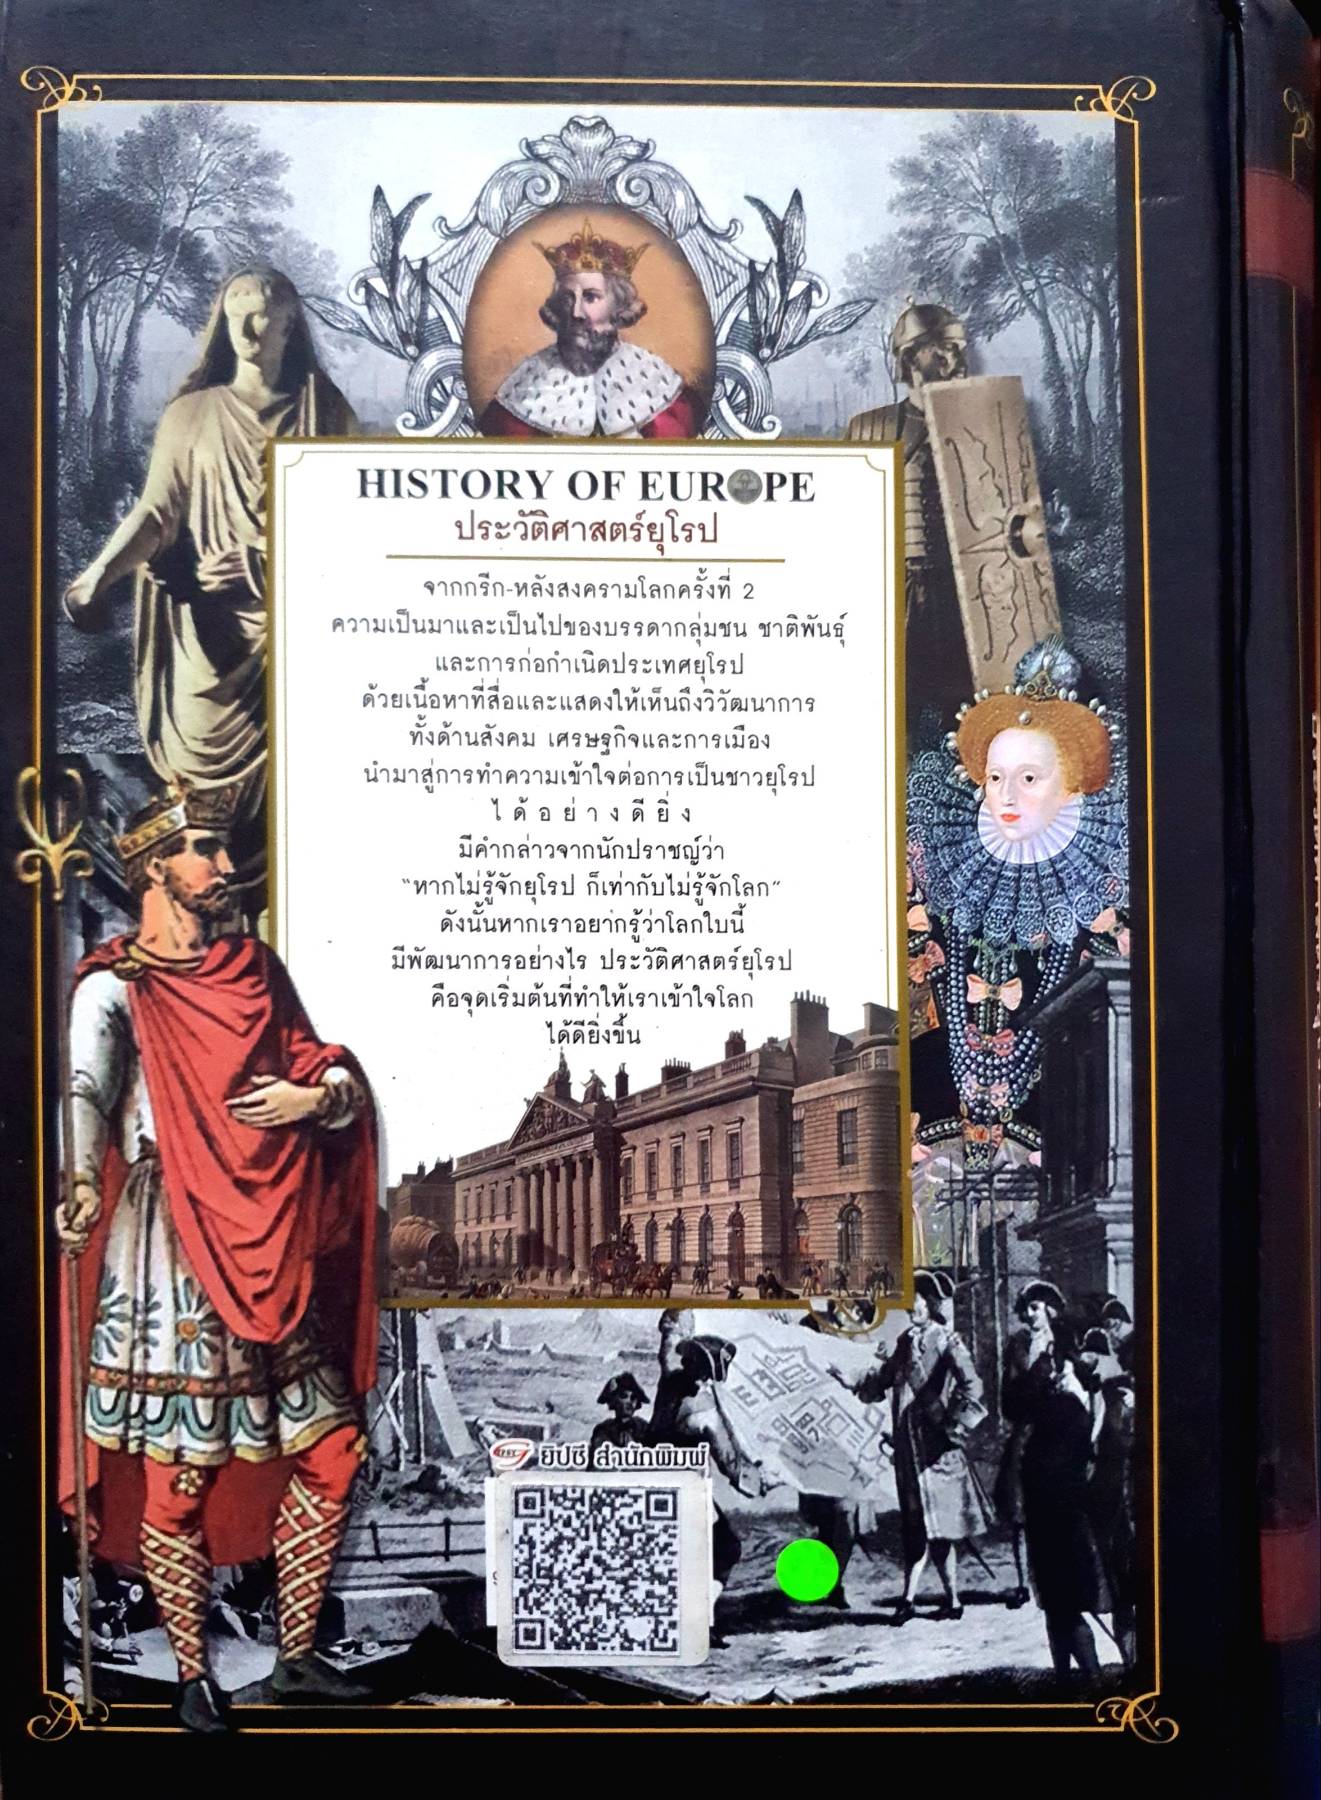 HISTORY OF EUROPE
ประวัติศาสตร์ยุโรป
จากกรีก-หลังสงครามโลกครั้งที่ 2
ความเป็นมาและเป็นไปของบรรดากลุ่มชน ชาติพันธุ์
และการก่อกำเนิดประเทศยุโรป
ด้วยเนื้อหาที่สื่อและแสดงให้เห็นถึงวิวัฒนาการ
ทั้งด้านสังคม เศรษฐกิจและการเมือง
นำมาสู่การทำความเข้าใจต่อการเป็นชาวยุโรป
ได้อย่างดียิ่ง
มีคำกล่าวจากนักปราชญ์ว่า
"หากไม่รู้จักยุโรป ก็เท่ากับไม่รู้จักโลก"
ดังนั้นหากเราอยากรู้ว่าโลกใบนี้
มีพัฒนาการอย่างไร ประวัติศาสตร์ยุโรป
คือจุดเริ่มต้นที่ทำให้เราเข้าใจโลก
ได้ดียิ่งขึ้น
ยิปซี สำนักพิมพ์